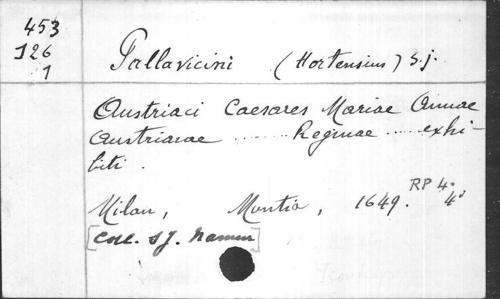 453
126
1
Pallavicini (Hortensius) S.j.
Austriaci Caesares Mariae Annae
Austriacae ........ Reginae ..... exhi-
biti.
Milan, Montia, 1649. 4°
RP 4.
[Coll. SJ. Namur